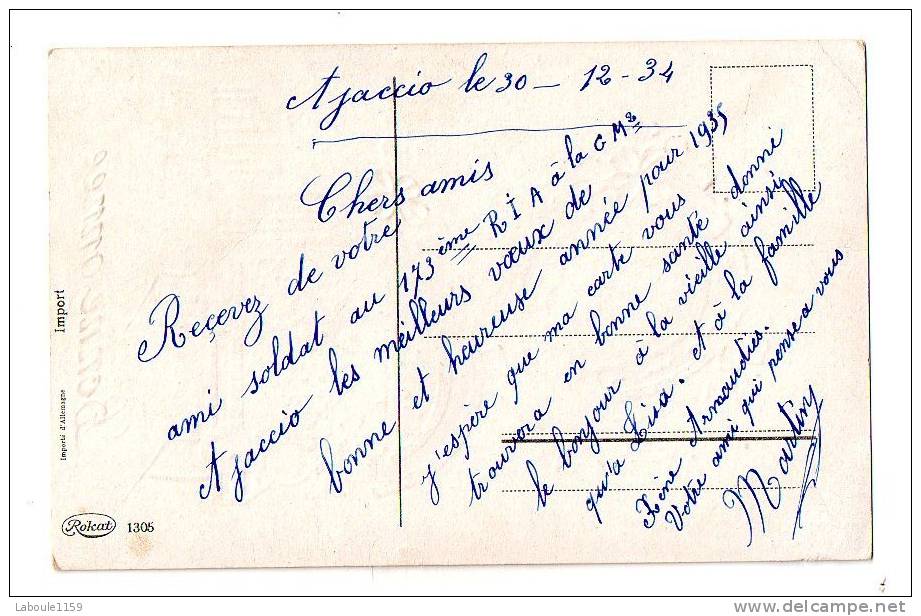 Ajaccio le 30 - 12 - 34
Chers amis
Reçevez de votre
ami soldat au 173ème R I A à la C Mse
Ajaccio les meilleurs vœux de
bonne et heureuse année pour 1935
j'espère que ma carte vous
trouvera en bonne santé donné
le bonjour à la vieille ainsi
qu'a Lisa. et à la famille
Xène Arnaudies.
Votre ami qui pense a vous
Martiny
Import
Importé d'Allemagne
Rokat 1305
Bonne Année
Laboule1159
www.delcampe.net